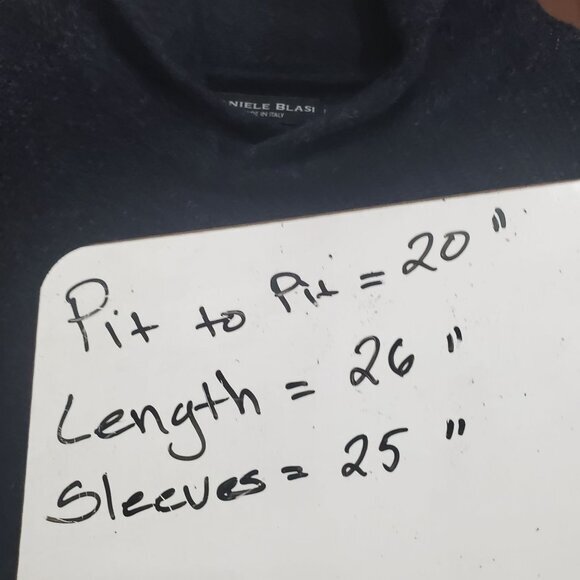 NIELE BLASI
IN ITALY
Pit to Pit = 20 "
Length = 26 "
Sleeves = 25 "